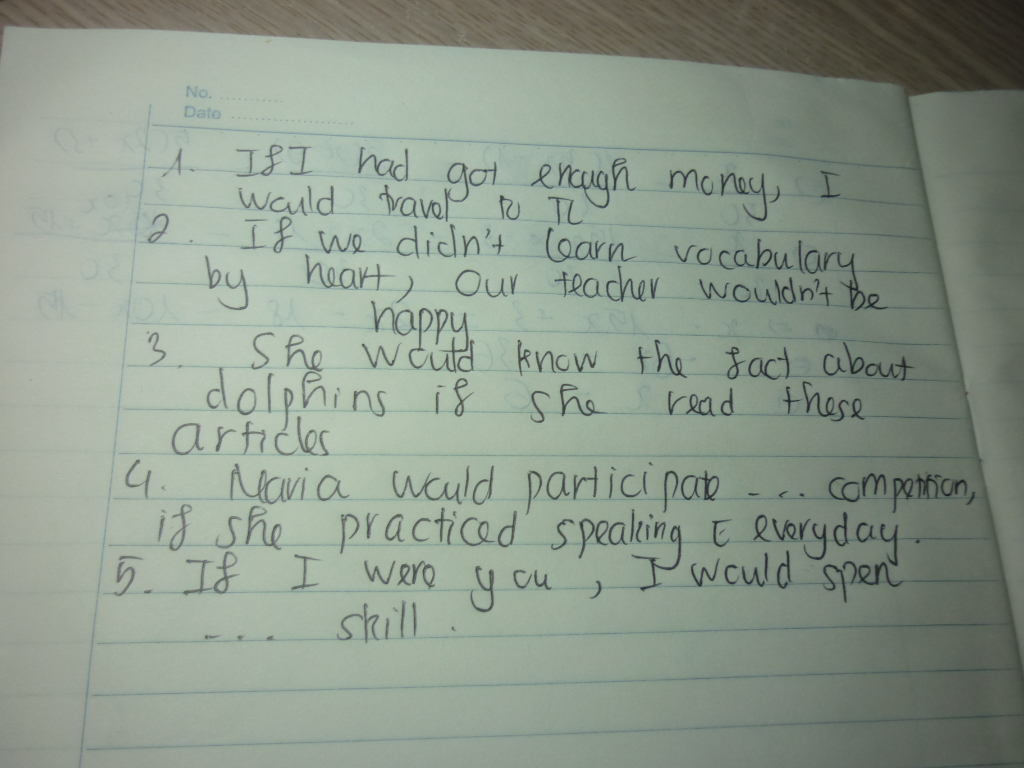 No. ............
Date .....................
1. If I had got enough money, I
would travel to TL
2. If we didn't learn vocabulary
by heart, our teacher wouldn't be
happy
3 She would know the fact about
dolphins if she read these
articles
4. Maria would participate - ... competition,
if she practiced speaking E everyday.
5. If I were you, I would spen
.... skill.